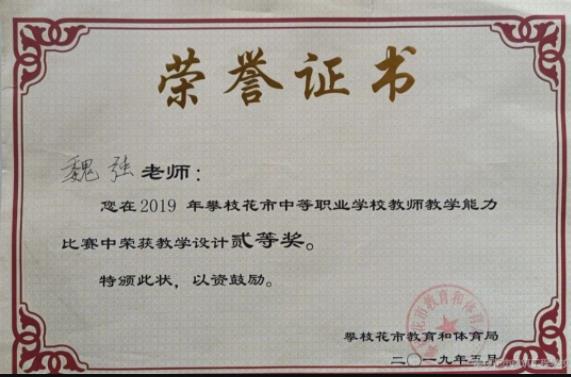 荣誉证书
魏强老师：
您在2019年攀枝花市中等职业学校教师教学能力
比赛中荣获教学设计贰等奖。
特颁此状，以资鼓励。
攀枝花市教育和体育局
二〇一九年五月